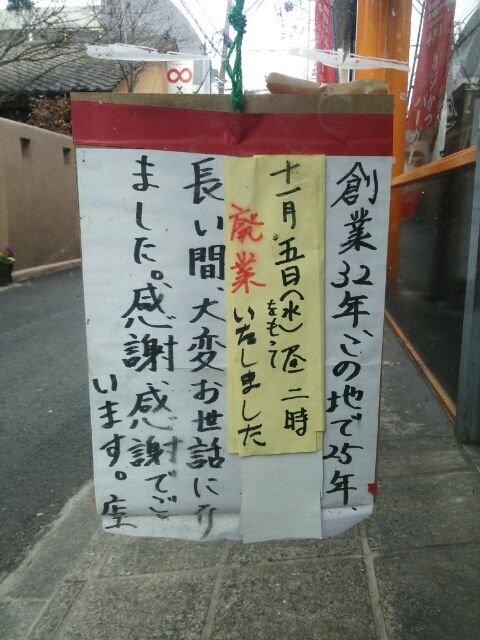 創業32年、この地で25年、
十一月五日(水)昼二時
をもって
廃業いたしました
長い間、大変お世話になり
ました。感謝、感謝でござ
います。店主